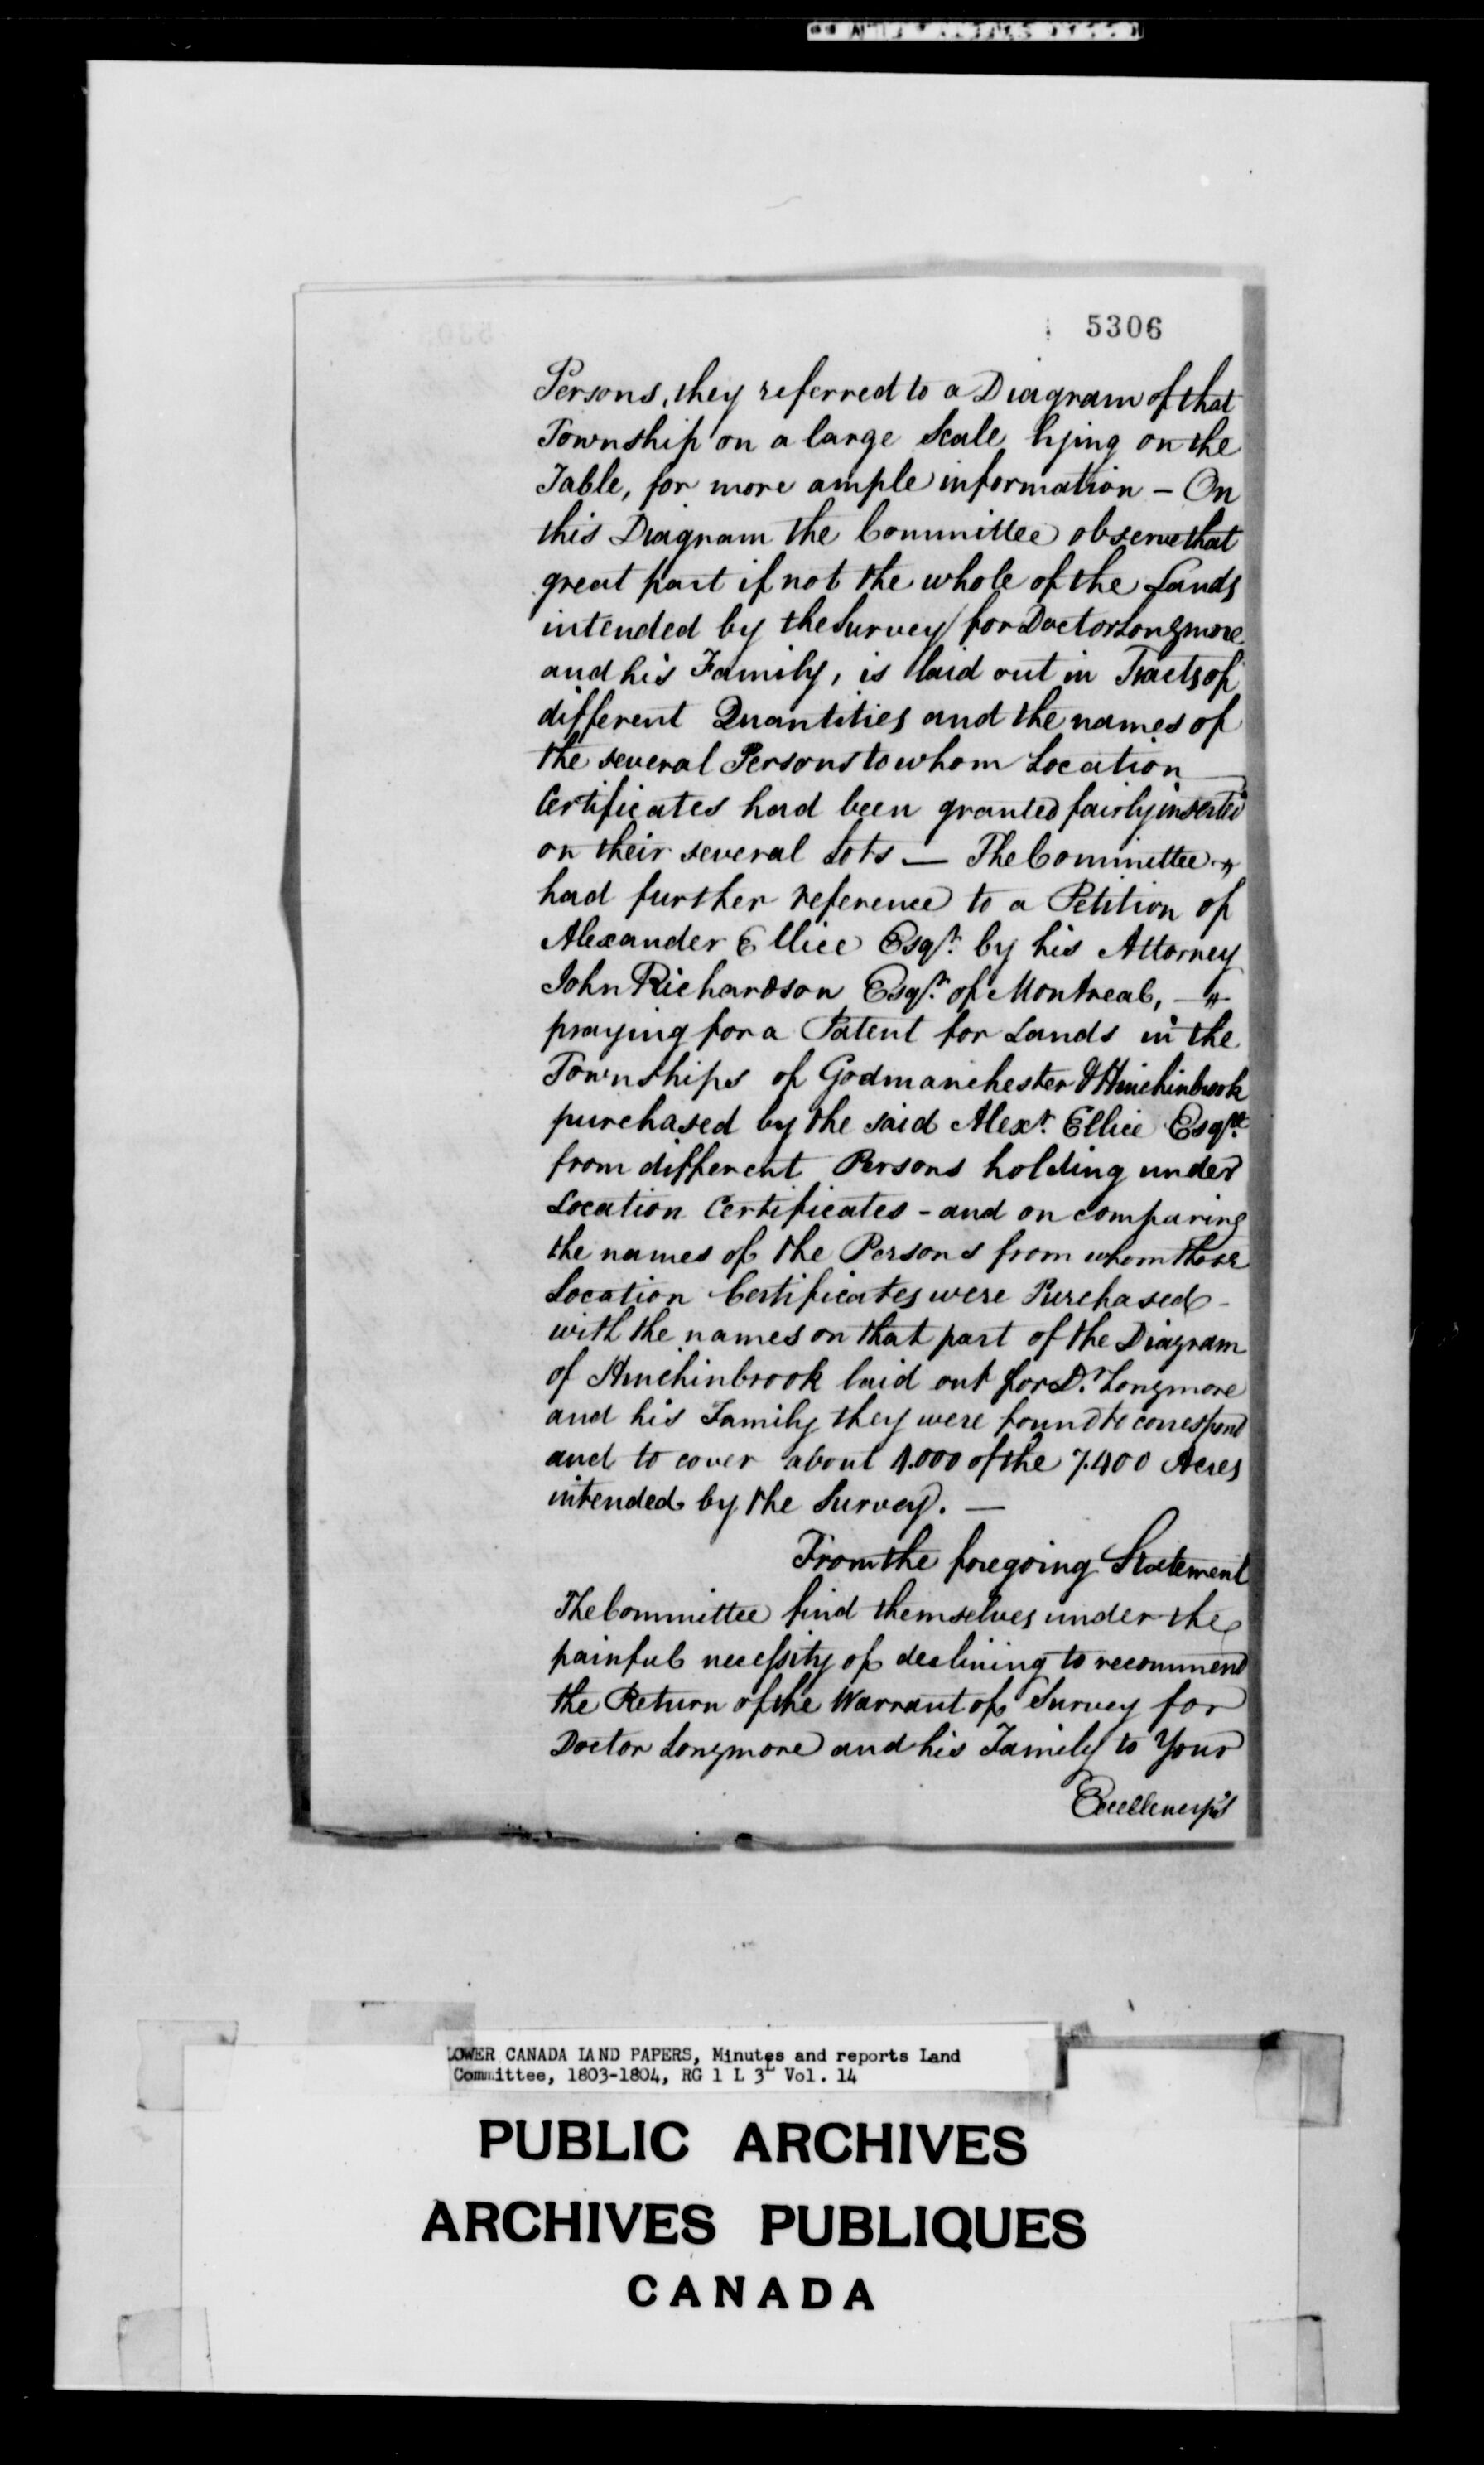 5306
Persons, they referred to a Diagram of that
Township on a large Scale lying on the
Table, for more ample information — On
this Diagram the Committee observe that
great part if not the whole of the Lands
intended by the Survey for Doctor Longmore
and his Family, is laid out in Tracts of
different Quantities and the names of
the several Persons to whom Location
Certificates had been granted fairly inserted
on their several Lots — The Committee
had further reference to a Petition of
Alexander Ellice Esqr. by his Attorney
John Richardson Esqr. of Montreal, —
praying for a Patent for Lands in the
Townships of Godmanchester & Hinchinbrook
purchased by the said Alexr. Ellice Esqre.
from different Persons holding under
Location Certificates - and on comparing
the names of the Persons from whom those
Location Certificates were Purchased -
with the names on that part of the Diagram
of Hinchinbrook laid out for Dr. Longmore
and his Family they were found to correspond
and to cover about 1.000 of the 7.400 Acres
intended by the Survey. —
From the foregoing Statement
The Committee find themselves under the
painful necessity of declining to recommend
the Return of the Warrant of Survey for
Doctor Longmore and his Family to Your
Excellency's
LOWER CANADA LAND PAPERS, Minutes and reports Land
Committee, 1803-1804, RG 1 L 3L Vol. 14
PUBLIC ARCHIVES
ARCHIVES PUBLIQUES
CANADA